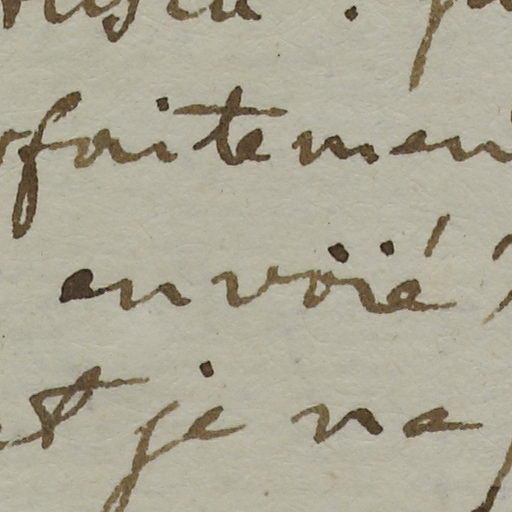 rfaitemen
envoïé
et je ne